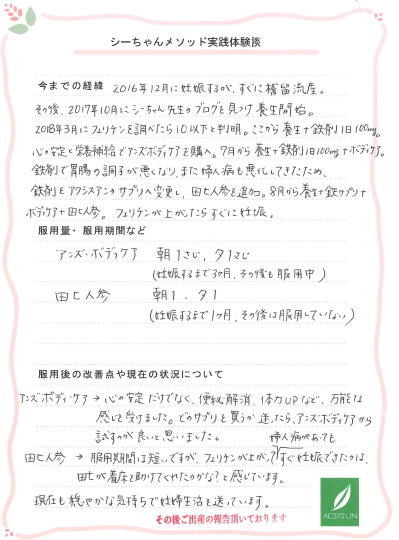 シーちゃんメソッド実践体験談
今までの経緯 2016年12月に妊娠するが、すぐに稽留流産。
その後、2017年10月にシーちゃん先生のブログを見つけ養生開始。
2018年3月にフェリチンを調べたら10以下と判明。ここから養生+鉄剤1日100mg。
心の安定と栄養補給でアンズボディケアを購入。7月から養生+鉄剤1日100mg+ボディケア。
鉄剤で胃腸の調子が悪くなり、また婦人病も悪化してきたため、
鉄剤をアクシスアンのサプリへ変更し、田七人参を追加。8月から養生+鉄サプリ+
ボディケア+田七人参。フェリチンが上がったらすぐに妊娠。
服用量・服用期間など
アンズ・ボディケア 朝1さじ、夕1さじ
(妊娠するまで3ヶ月、その後も服用中)
田七人参 朝1、夕1
(妊娠するまで1ヶ月、その後は服用していない)
服用後の改善点や現在の状況について
アンズボディ・ケア → 心の安定だけでなく、便秘解消、体力UPなど、万能な
感じを受けました。どのサプリを買うか迷ったら、アンズ・ボディケアから
試すのが良いと思いました。
婦人病があっても
田七人参 → 服用期間は短いですが、フェリチンが上がってすぐ妊娠できたのは、
田七が着床を助けてくれたのかな?と感じています。
現在も穏やかな気持ちで妊婦生活を送っています。
その後ご出産の報告頂いております
ACSYS'LIN